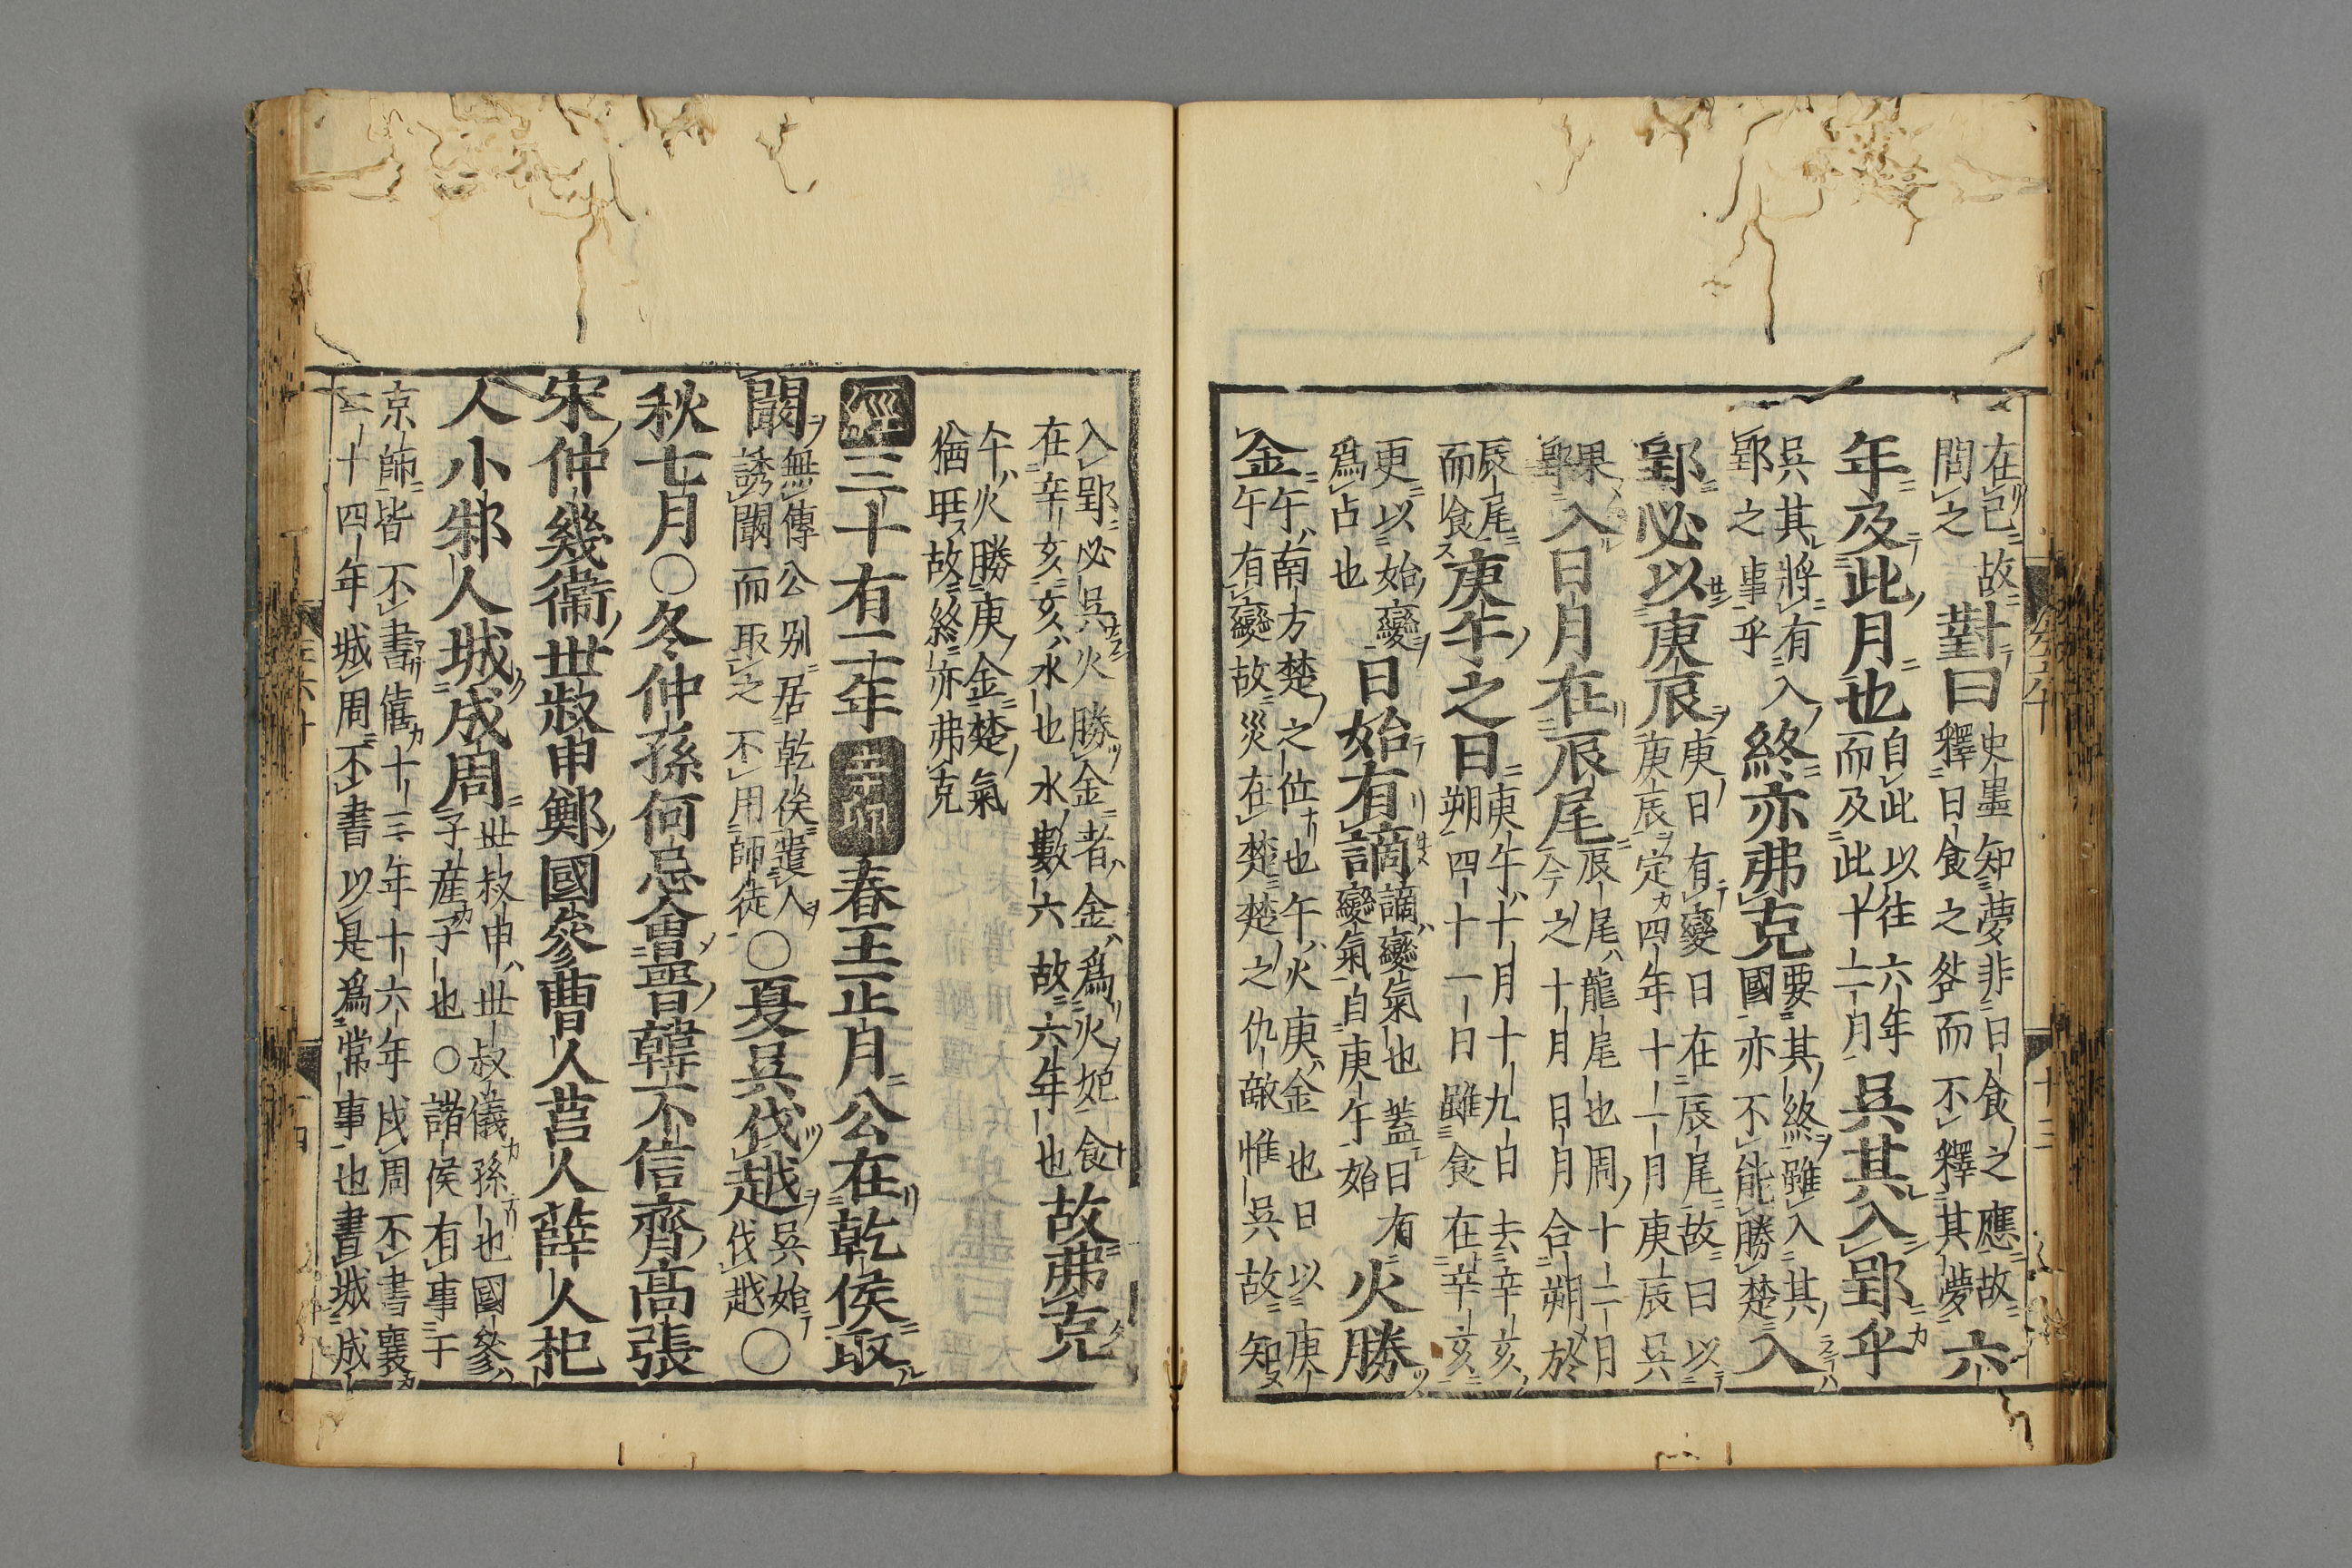 在己故問之對曰史墨知夢非日食之應故釋日食之咎而不釋其夢六
年及此月也自此以往六年而及此十二月吳其入郢乎
吳其將有入郢之事乎終亦弗克要其終雖入其國亦不能勝楚入
郢必以庚辰庚日有變日在辰尾故曰以庚辰定四年十一月庚辰吳
果入郢日月在辰尾辰尾龍尾也周十二月今之十月日月合朔於
辰尾而食庚午之日庚午十月十九日去辛亥朔四十一日雖食在辛亥
更以始變爲占也日始有謫謫變氣也蓋日有變氣自庚午始火勝
金午南方楚之位也午火庚金也日以庚午有變故災在楚楚之仇敵惟吳故知
入郢必吳火勝金者金爲火妃食在辛亥亥水也水數六故六年也故弗克
午火勝庚金楚氣猶旺故終亦弗克
經三十有二年辛卯春王正月公在乾侯取
闞無傳公别居乾侯遣人誘闞而取之不用師徒○夏吳伐越吳始伐越○
秋七月○冬仲孫何忌會晉韓不信齊高張
宋仲幾衞世叔申鄭國參曹人莒人薛人杞
人小邾人城成周世叔申世叔儀孫也國參子産子也○諸侯有事于
京師皆不書僖十三年十六年戍周不書襄二十四年城周不書以是爲常事也書城成